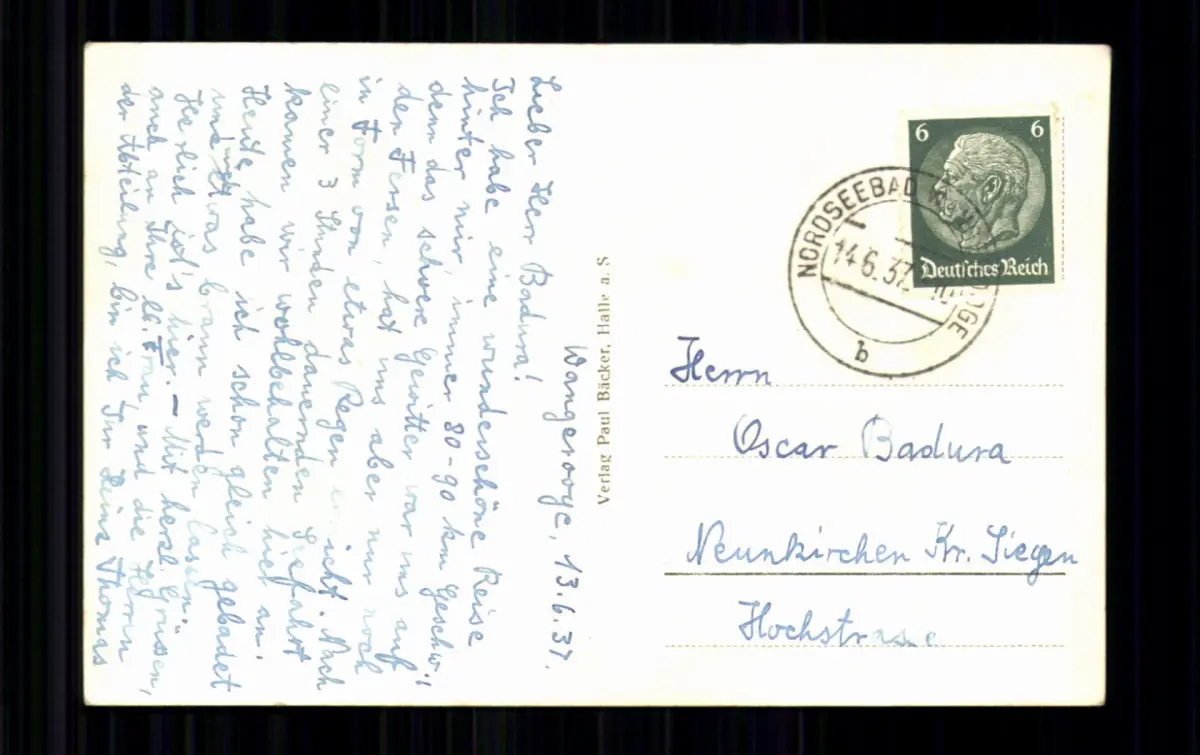 Wangerooge, 13.6.37.
Lieber Herr Badura!
Ich habe eine wunderschöne Reise
hinter mir, immer 80-90 km Geschw.!
denn das schwere Gewitter war uns auf
den Fersen, hat uns aber nur noch
in Form von etwas Regen erwischt. Nach
einer 3 Stunden dauernden Seefahrt
kamen wir wohlbehalten hier an.
Heute habe ich schon gleich gebadet
und mich etwas braun werden lassen.
Herrlich ist's hier. - Mit herzl. Grüssen,
auch an Ihre lb. Frau, und die Herrn
der Abteilung, bin ich Ihr Thomas
Verlag Paul Bäcker, Halle a. S
6 6
Deutsches Reich
NORDSEEBAD
14.6.37
b
Herrn
Oscar Badura
Neunkirchen Kr. Siegen
Hochstrasse